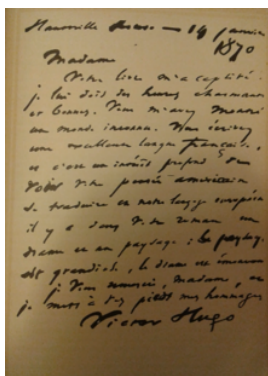 Hauteville House — 14 janvier
1870
Madame
Votre livre m'a captivé.
je lui dois des heures charmantes
et bonnes. Vous m'avez montré
un monde inconnu. Vous écrivez
une excellente langue française,
et c'est un intérêt profond de
voir votre pensée américaine
se traduire en notre langage européen
il y a dans votre roman un
drame et un paysage; le paysage
est grandiose, le drame est émouvant
je vous remercie, madame, et
je mets à vos pieds mes hommages
Victor Hugo